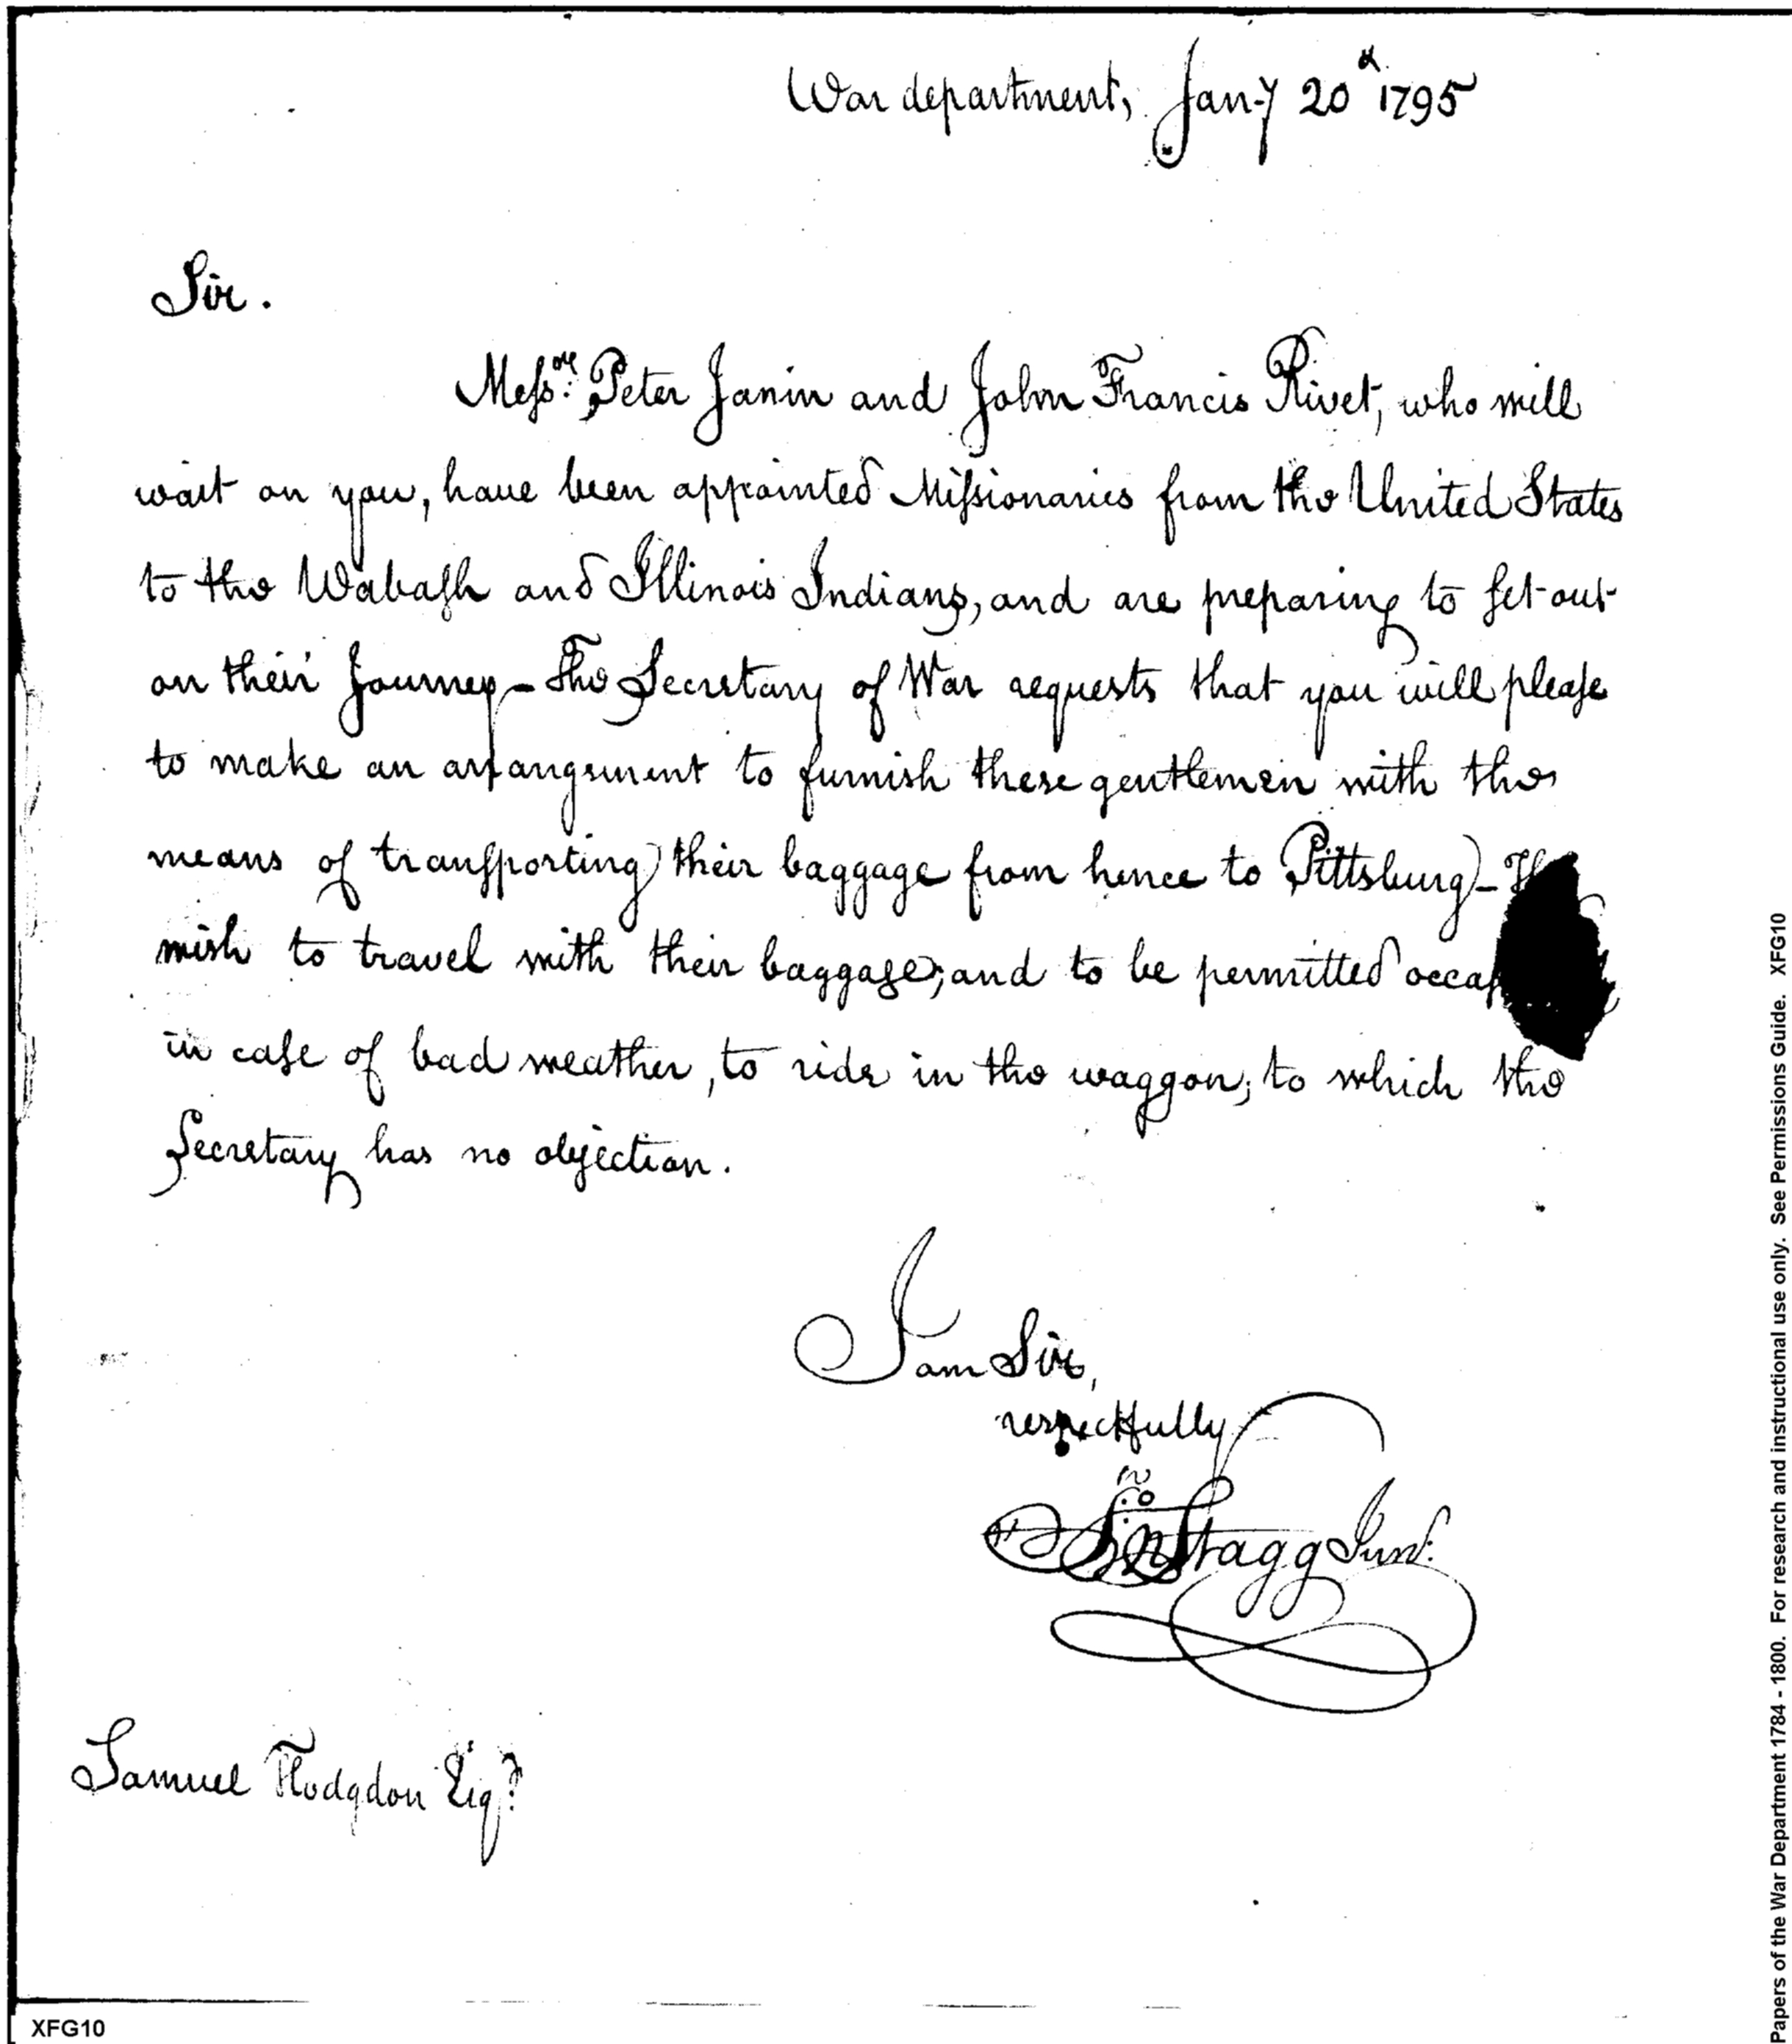 War department, Jan-y 20th 1795
Sir.
Messrs: Peter Janin and John Francis Rivet, who will
wait on you, have been appointed Missionaries from the United States
to the Wabash and Illinois Indians, and are preparing to set-out
on their Journey – The Secretary of War requests that you will please
to make an arrangement to furnish these gentlemen with the
means of transporting their baggage from hence to Pittsburg –
wish to travel with their baggage; and to be permitted
in case of bad weather, to ride in the waggon; to which the
Secretary has no objection.
I am Sir,
respectfully
Jno Stagg Junr:
Samuel Hodgdon Esqr:
XFG10
Papers of the War Department 1784 - 1800. For research and instructional use only. See Permissions Guide. XFG10